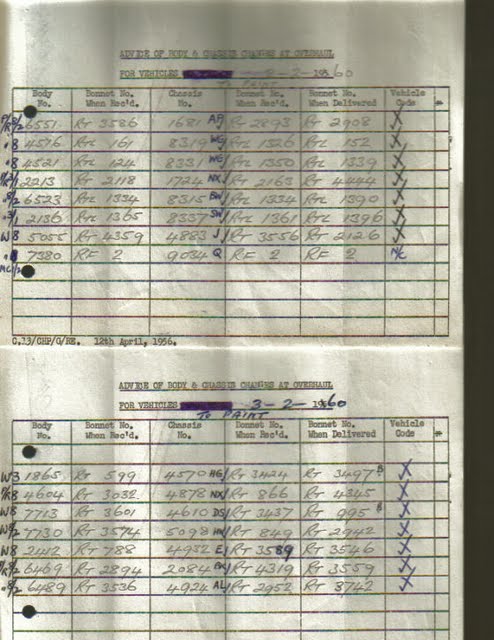 ADVICE OF BODY & CHASSIS CHANGES AT OVERHAUL
FOR VEHICLES 2-2-1960
TO PAINT
Body No. Bonnet No. When Rec'd. Chassis No. Bonnet No. When Rec'd. Bonnet No. When Delivered Vehicle Code
6551 RT 3586 1681 AP RT 2893 RT 2908 X
8 4576 RTL 161 8319 WG RTL 1326 RTL 152 X
8 4521 RTL 124 8331 WG RTL 1350 RTL 1339 X
2213 RT 2118 1724 NX RT 2163 RT 4444 X
6523 RTL 1334 8315 BW RTL 1334 RTL 1390 X
2136 RTL 1365 8337 SW RTL 1361 RTL 1396 X
W8 5055 RT 4359 4883 J RT 3556 RT 2126 X
8 7380 RF 2 9034 Q RF 2 RF 2 N/C
C.13/CHP/G/RE. 12th April, 1956.
ADVICE OF BODY & CHASSIS CHANGES AT OVERHAUL
FOR VEHICLES 3-2-1960
TO PAINT
Body No. Bonnet No. When Rec'd. Chassis No. Bonnet No. When Rec'd. Bonnet No. When Delivered Vehicle Code
W3 1865 RT 599 4570 HG RT 3424 RT 3497 X
4604 RT 3032 4878 NX RT 866 RT 4345 X
W8 7713 RT 3601 4610 DS RT 3437 RT 995 X
7730 RT 3574 5098 RT 849 RT 2942 X
W8 2412 RT 788 4952 E RT 3589 RT 3546 X
6469 RT 2894 2084 RT 4319 RT 3559 X
6489 RT 3536 4924 AL RT 2952 RT 3742 X